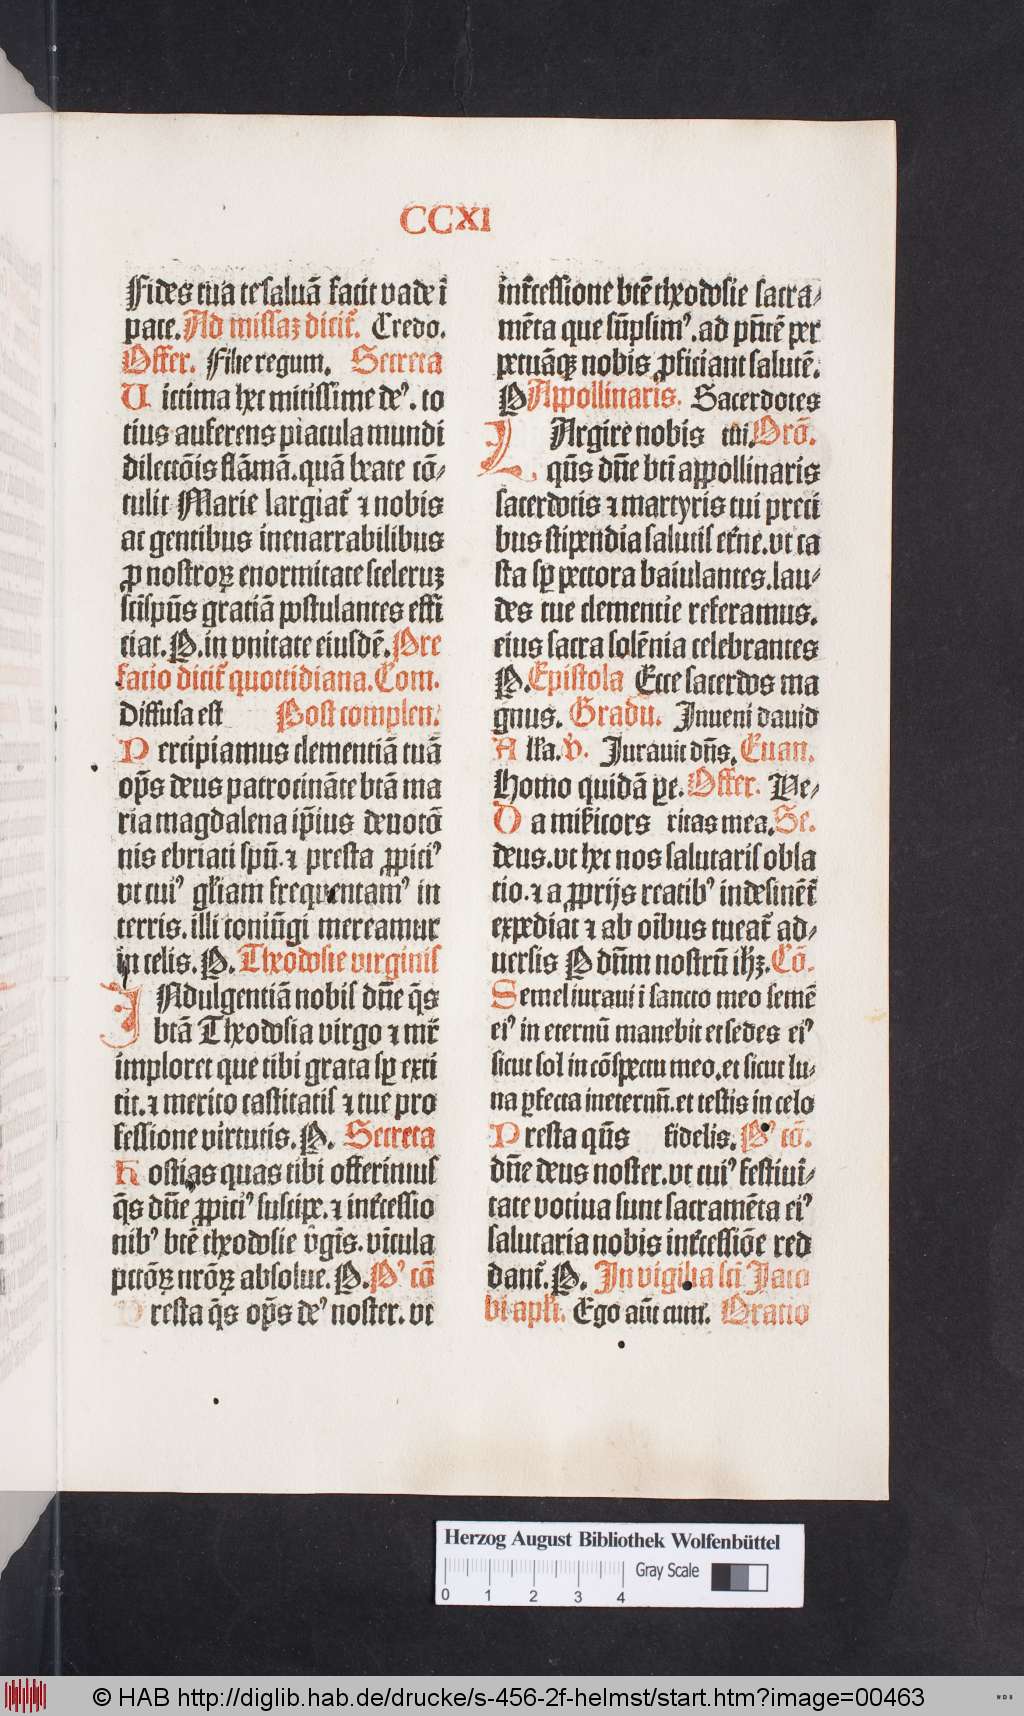 CCXI
Fides tua te saluā facit vade ī
pace. Ad missaꝫ dicit᷑. Credo.
Offer. Filie regum. Secreta
Uictima hec mitissime deꝰ. to
tius auferens piacula mundi
dilectōis flāmā. quā beate cō-
tulit Marie largiat᷑ ⁊ nobis
ac gentibus inenarrabilibus
ꝓ nostroꝝ enormitate sceleruꝫ
sctīspūs gratiā postulantes effi
ciat. P. in vnitate eiusdē. Pre
facio dicit᷑ quottidiana. Com.
Diffusa est Post complen.
Percipiamus clementiā tuā
op̄s deus patrocināte btā ma
ria magdalena ip̄ius deuotō
nis ebriati spū. ⁊ presta ꝓpiciꝰ
vt cuiꝰ gl̄iam frequentamꝰ in
terris. illi coniūgi mereamur
in celis. P. Theodosie virginis
INdulgentiā nobis dn̄e q̄s
btā Theodosia virgo ⁊ mr̄
imploret que tibi grata sꝑ exti
tit. ⁊ merito castitatis ⁊ tue pro
fessione virtutis. P. Secreta
Hostias quas tibi offerimus
q̄s dn̄e ꝓpiciꝰ suscipe. ⁊ int᷑cessio
nibꝰ btē theodosie v̄gīs. vīcula
pctōꝝ nrōꝝ absolue. P. Pꝰ cō
Presta q̄s op̄s deꝰ noster. vt
int᷑cessione btē theodosie sacra-
mēta que sūpsimꝰ. ad pn̄tē per
petuāqꝫ nobis ꝓficiant salutē.
P Appollinaris. Sacerdotes
LArgire nobis tui. Orō.
qūs dn̄e bti appollinaris
sacerdotis ⁊ martyris tui preci
bus stipendia salutis et᷑ne. vt ca
sta sꝑ pectora baiulantes. lau-
des tue clementie referamus.
eius sacra solēnia celebrantes
P. Epistola Ecce sacerdos ma
gnus. Gradu. Inueni dauid
Alla. V. Iurauit dn̄s. Euan.
Homo quidā ꝑe. Offer. Ve-
Da mis̄icors ritas mea. Se.
deus. vt hec nos salutaris obla
tio. ⁊ a ꝓprijs reatibꝰ indesinēt᷑
expediat ⁊ ab oībus tueat᷑ ad-
uersis P dnm̄ nostrū ihꝫ. Cō.
Semel iuraui i sancto meo semē
eiꝰ in eternū manebit et sedes eiꝰ
sicut sol in cōspectu meo. et sicut lu-
na ꝑfecta in eternū. et testis in celo
Presta qūs fidelis. Pꝰ cō.
dn̄e deus noster. vt cuiꝰ festiui-
tate votiua sunt sacramēta eiꝰ
salutaria nobis int᷑cessiōe red
dant᷑. P. In vigilia scī Iaco
bi apl̄i. Ego aūt cum. Oratio
Herzog August Bibliothek Wolfenbüttel
Gray Scale
0 1 2 3 4
© HAB http://diglib.hab.de/drucke/s-456-2f-helmst/start.htm?image=00463